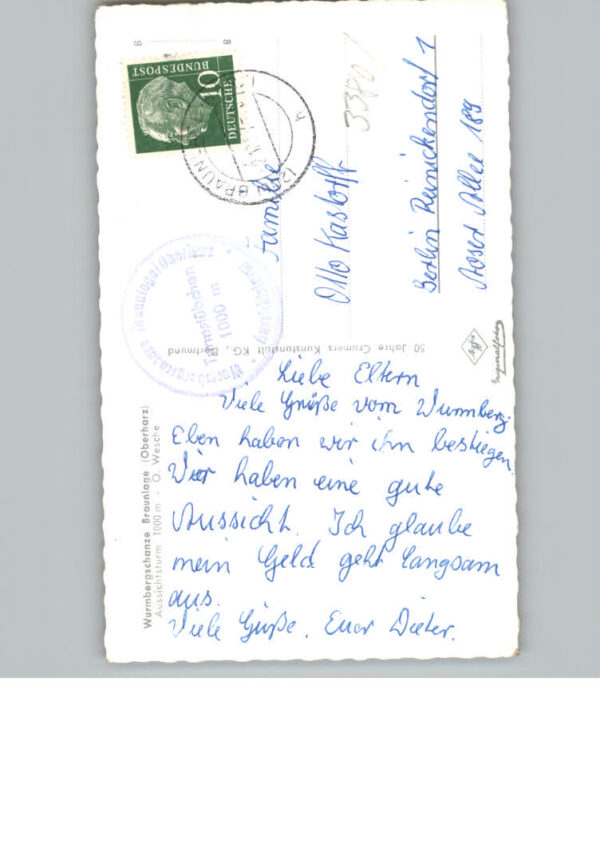 Liebe Eltern
Viele Grüße vom Wurmberg.
Eben haben wir ihn bestiegen.
Wir haben eine gute
Aussicht. Ich glaube
mein Geld geht langsam
aus.
Viele Grüße. Euer Dieter.
Familie
Otto Kastorff
Berlin Reinickendorf 1
Aroser Allee 189
3380/
DEUTSCHE
BUNDESPOST
10
BRAUN
Wurmbergschanze Braunlage/Oberharz
Turmstübchen
1000 m
50 Jahre Cramers Kunstanstalt KG., Dortmund
Agfa
Wurmbergschanze Braunlage (Oberharz)
Aussichtsturm 1000 m - O. Wesche